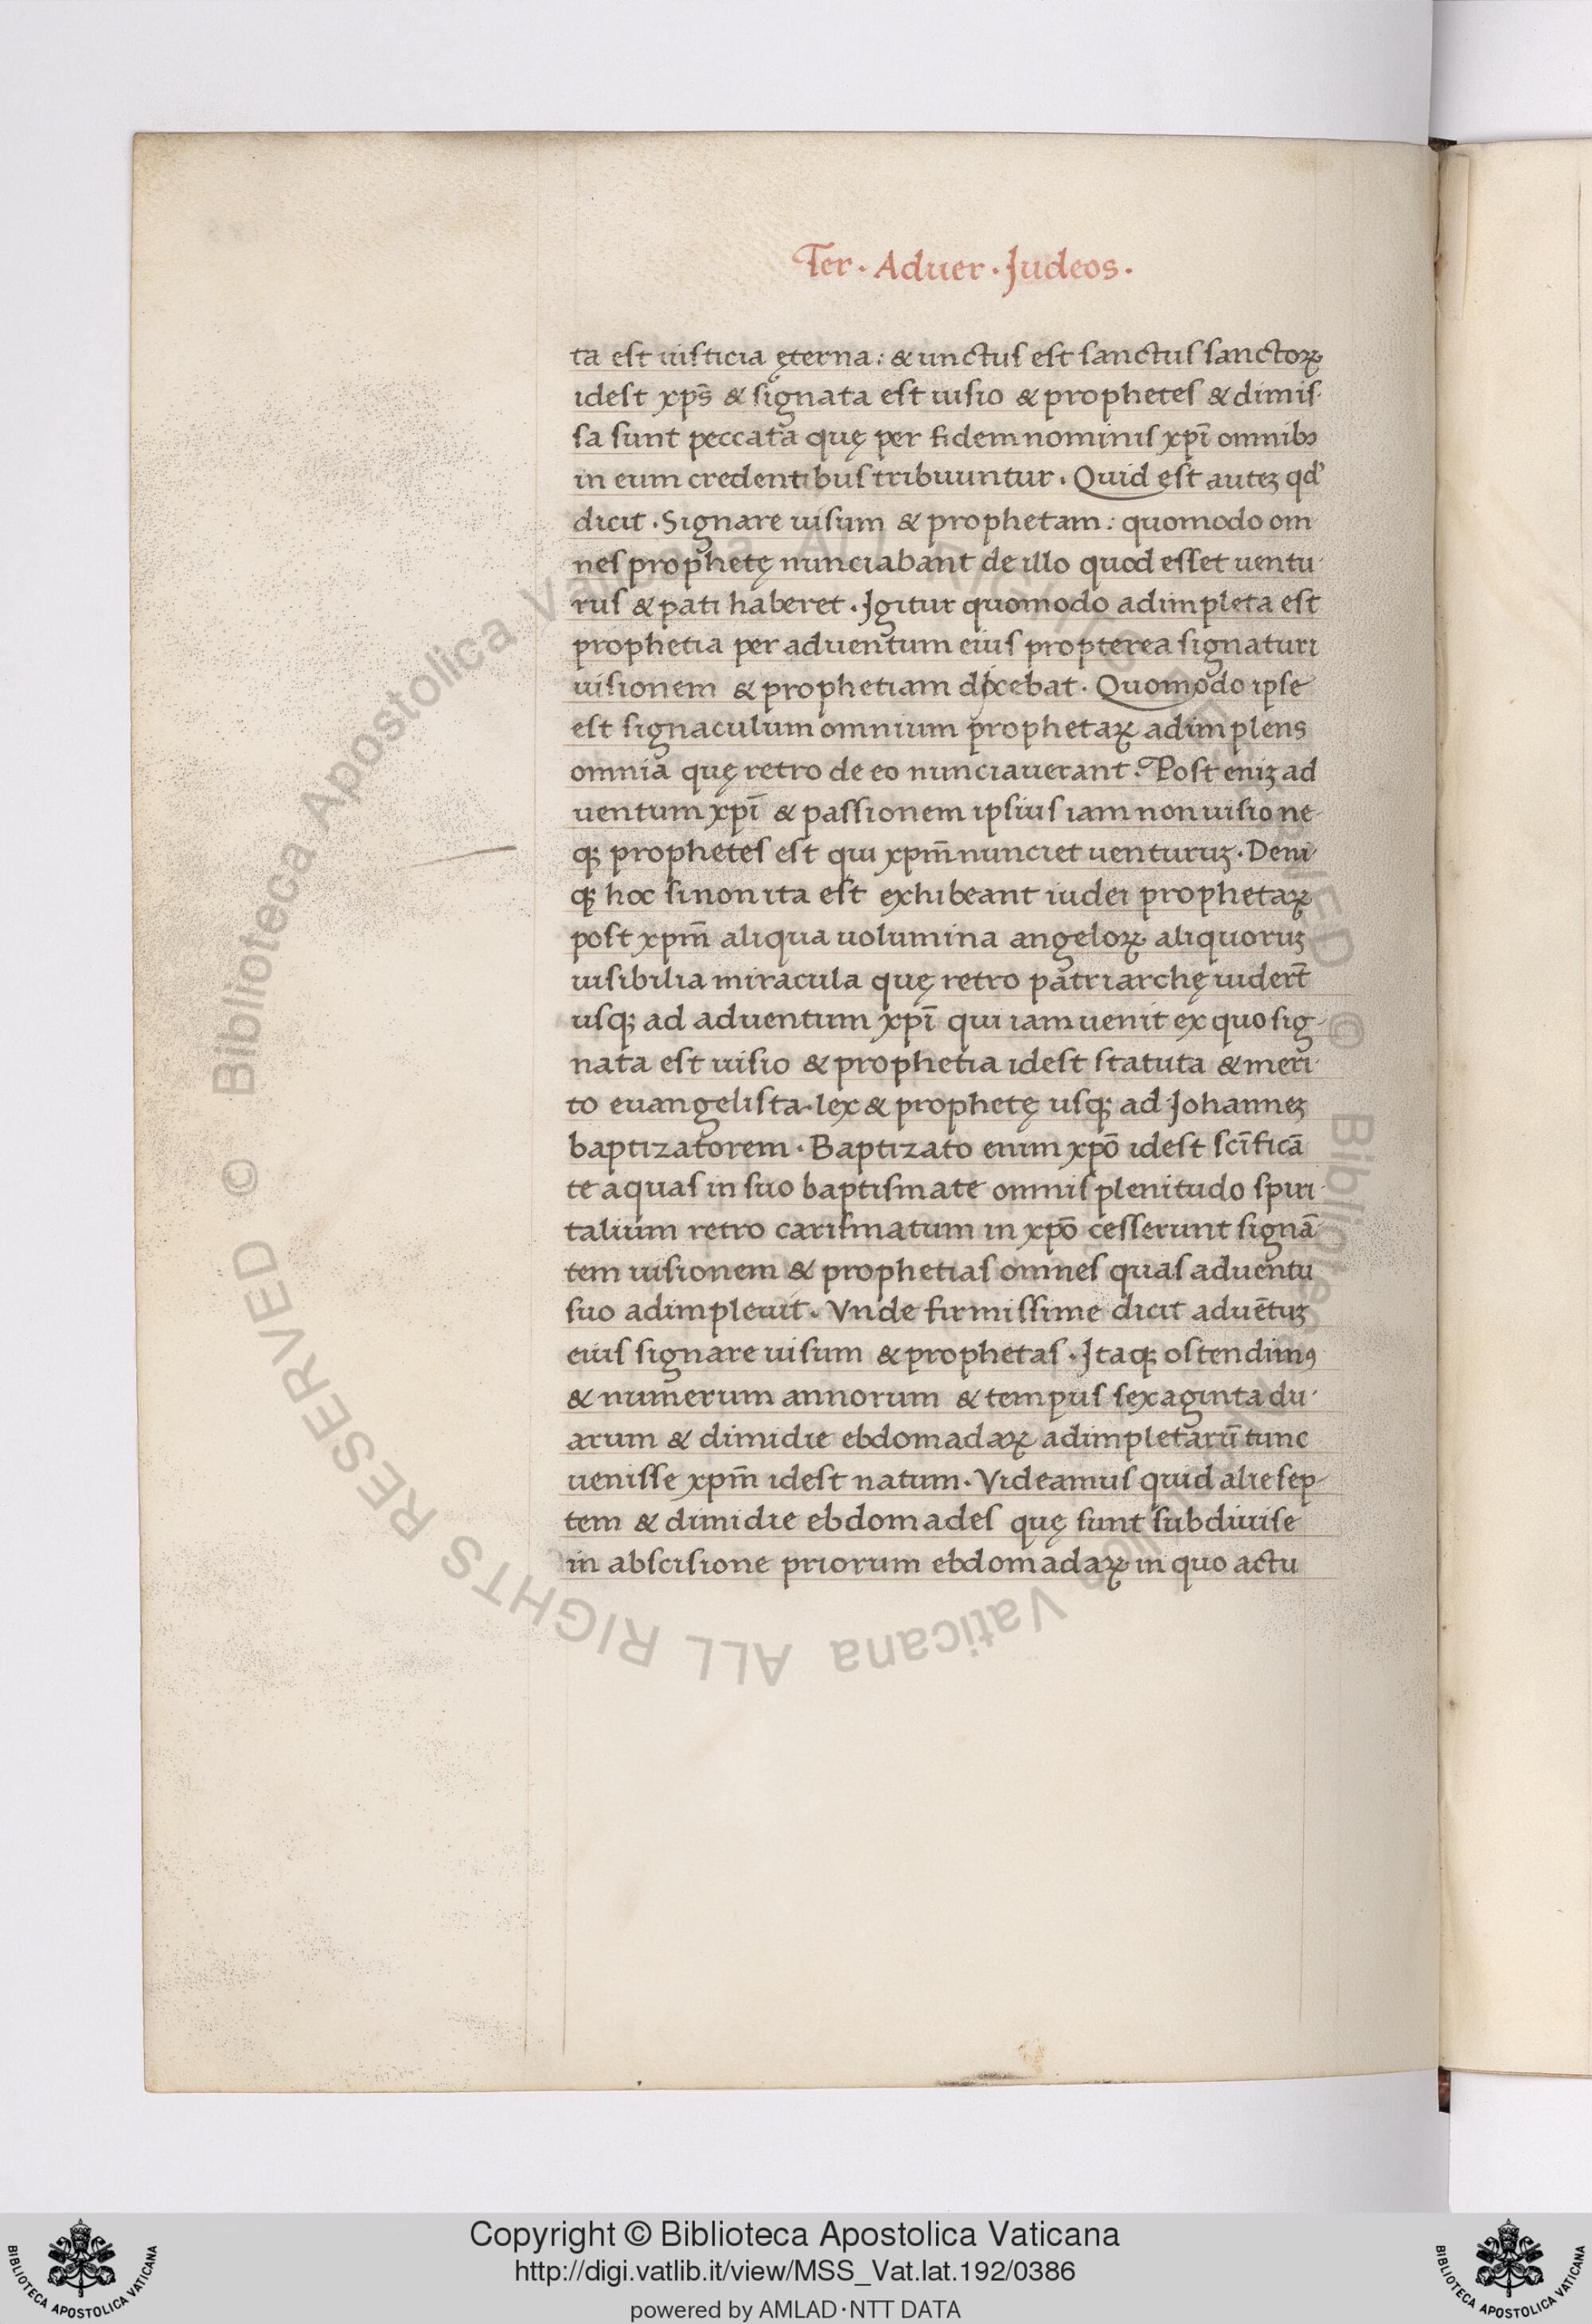 Ter · Aduer · Judeos ·
ta est iusticia ęterna: & unctus est sanctus sanctoꝝ
idest xp̄s & signata est uisio & prophetes & dimis·
sa sunt peccata quę per fidem nominis xp̄i omnibꝫ
in eum credentibus tribuuntur . Quid est auteꝫ qd'
dicit . Signare uisum & prophetam : quomodo om
nes prophetę nunciabant de illo quod esset uentu·
rus & pati haberet . Jgitur quomodo adimpleta est
prophetia per aduentum eius propterea signaturi
uisionem & prophetiam dicebat · Quomodo ipse
est signaculum omnium prophetaꝝ adimplens
omnia quę retro de eo nunciauerant . Post eniꝫ ad
uentum xp̄i & passionem ipsius iam non uisio ne-
qꝫ prophetes est qui xpm̄ nunciet uenturuꝫ · Deni·
qꝫ hoc si non ita est exhibeant iudei prophetaꝝ
post xpm̄ aliqua uolumina angeloꝝ aliquoruꝫ
uisibilia miracula quę retro patriarchę uidert̄
usqꝫ ad aduentum xp̄i qui iam uenit ex quo sig-
nata est uisio & prophetia idest statuta & meri·
to euangelista · lex & prophetę usqꝫ ad Johanneꝫ
baptizatorem · Baptizato enim xpō idest sc̄ificā
te aquas in suo baptismate omnis plenitudo spiri·
talium retro carismatum in xpō cesserunt signā·
tem uisionem & prophetias omnes quas aduentu
suo adimpleuit . Vnde firmissime dicit aduētuꝫ
eius signare uisum & prophetas · Jtaqꝫ ostendimꝰ
& numerum annorum & tempus sexaginta du·
arum & dimidie ebdomadaꝝ adimpletarū tunc
uenisse xpm̄ idest natum · Videamus quid alie sep-
tem & dimidie ebdomades quę sunt subdiuise
in abscisione priorum ebdomadaꝝ in quo actu
© Biblioteca Apostolica Vaticana ALL RIGHTS RESERVED © Biblioteca Apostolica Vaticana ALL RIGHTS RESERVED
Copyright © Biblioteca Apostolica Vaticana
http://digi.vatlib.it/view/MSS_Vat.lat.192/0386
powered by AMLAD·NTT DATA
BIBLIOTECA APOSTOLICA VATICANA
BIBLIOTECA APOSTOLICA VATICANA